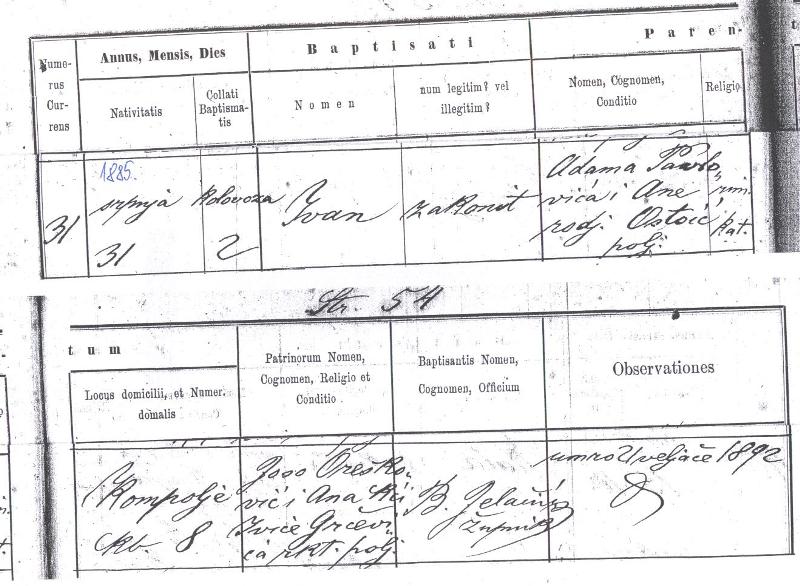 Annus, Mensis, Dies
Baptisati
Paren-
Nume-
rus
Cur-
rens
Nativitatis
Collati
Baptisma-
tis
Nomen
num legitim? vel
illegitim?
Nomen, Cognomen,
Conditio
Religio
31
1885.
srpnja
31
kolovoza
2
Ivan
zakonit
Adama Pavlo„
vića i Ane
rodj. Ostoić
polj.
rim.
kat.
Str. 54
tum
Locus domicilii, et Numer.
domalis
Patrinorum Nomen,
Cognomen, Religio et
Conditio
Baptisantis Nomen,
Cognomen, Officium
Observationes
Kompolje
kb. 8
Joso Orešко„
vić i Ana kći
Ivice Grčevi„
ća rkt. polj.
B. Jelačić
župnik
umro veljače 1892